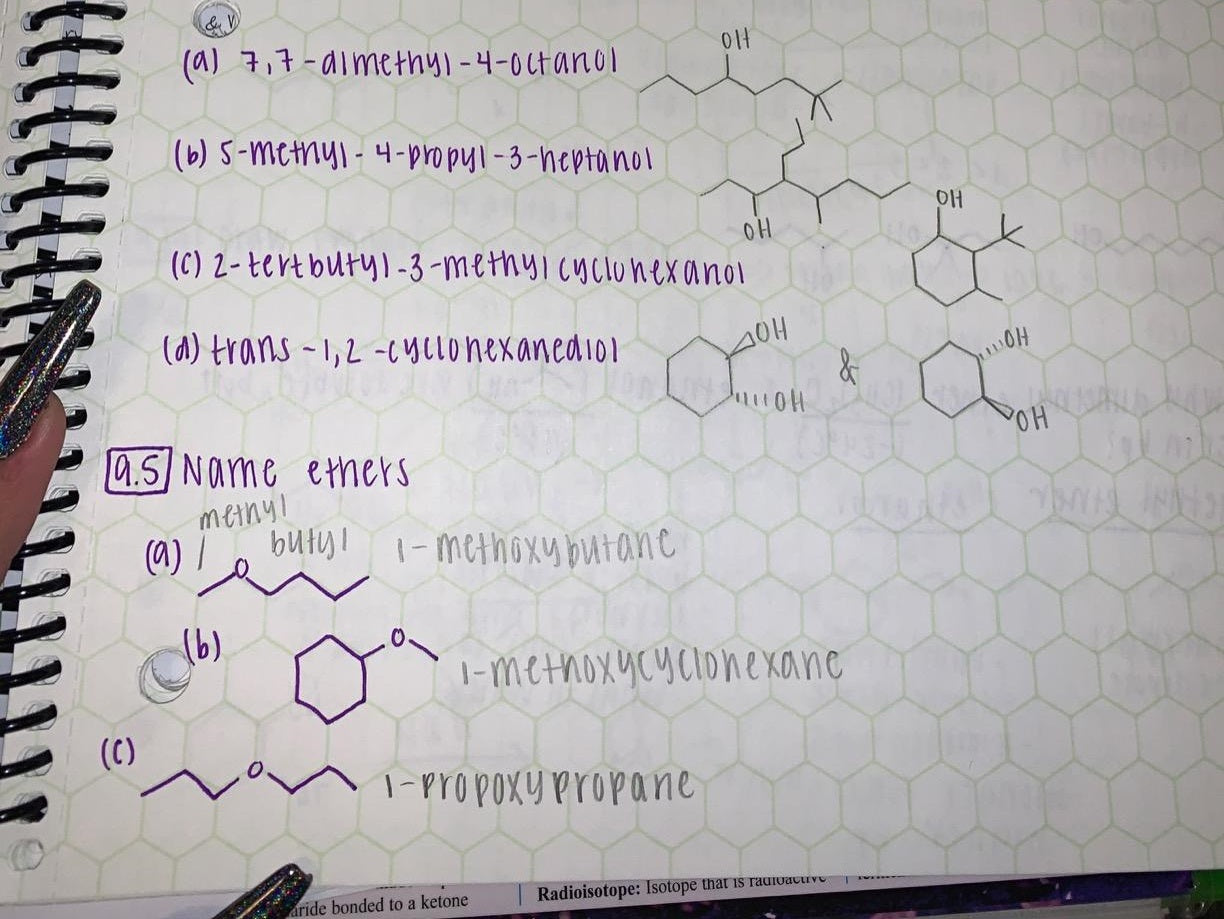 & V
(a) 7,7-dimethyl-4-octanol
OH
(b) 5-methyl-4-propyl-3-heptanol
OH
(c) 2-tertbutyl-3-methylcyclohexanol
OH
(d) trans-1,2-cyclohexanediol
OH
OH
&
OH
OH
9.5 Name ethers
methyl
(a) butyl 1-methoxybutane
O
(b)
O
1-methoxycyclohexane
(c)
O
1-propoxypropane
aride bonded to a ketone
Radioisotope: Isotope that is radioactive